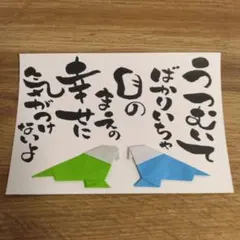 うつむいて
ばかりいちゃ
目の
まえの
幸せに
気がつけ
ないよ